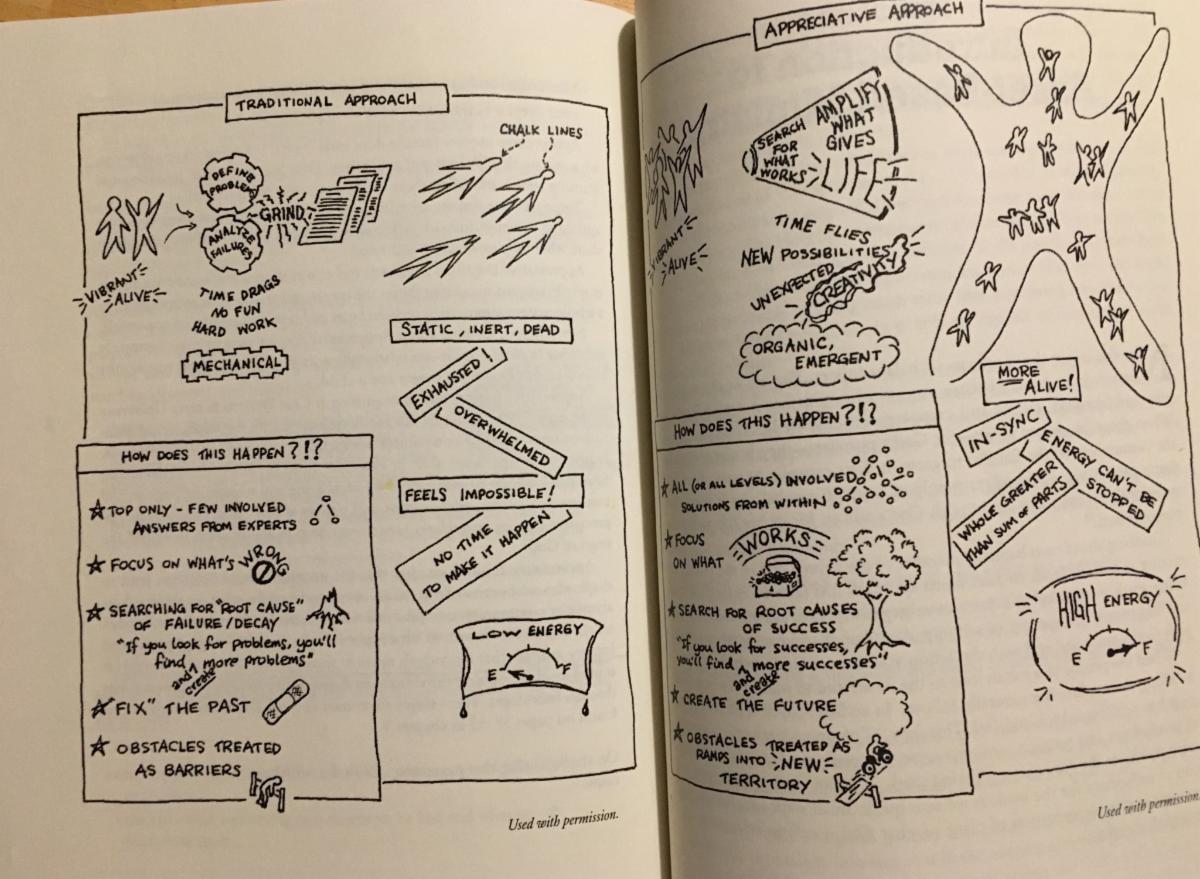 TRADITIONAL APPROACH
CHALK LINES
DEFINE
PROBLEM
GRIND
ANALYZE
FAILURES
VIBRANT
ALIVE
TIME DRAGS
NO FUN
HARD WORK
MECHANICAL
STATIC, INERT, DEAD
EXHAUSTED!
OVERWHELMED
FEELS IMPOSSIBLE!
NO TIME
TO MAKE IT HAPPEN
LOW ENERGY
E F
HOW DOES THIS HAPPEN?!?
TOP ONLY - FEW INVOLVED
ANSWERS FROM EXPERTS
FOCUS ON WHAT'S WRONG
SEARCHING FOR "ROOT CAUSE"
OF FAILURE/DECAY
"If you look for problems, you'll
find ^ more problems"
and
create
"FIX" THE PAST
OBSTACLES TREATED
AS BARRIERS
Used with permission.
APPRECIATIVE APPROACH
SEARCH
FOR
WHAT
WORKS
AMPLIFY
WHAT
GIVES
LIFE
VIBRANT
ALIVE
TIME FLIES
NEW POSSIBILITIES
UNEXPECTED
CREATIVITY
ORGANIC,
EMERGENT
MORE
ALIVE!
IN-SYNC
ENERGY CAN'T BE
STOPPED
WHOLE GREATER
THAN SUM OF PARTS
HIGH ENERGY
E F
HOW DOES THIS HAPPEN?!?
ALL (OR ALL LEVELS) INVOLVED
SOLUTIONS FROM WITHIN
FOCUS
ON WHAT WORKS
SEARCH FOR ROOT CAUSES
OF SUCCESS
"If you look for successes,
you'll find ^ more successes"
and
create
CREATE THE FUTURE
OBSTACLES TREATED AS
RAMPS INTO NEW
TERRITORY
Used with permission.